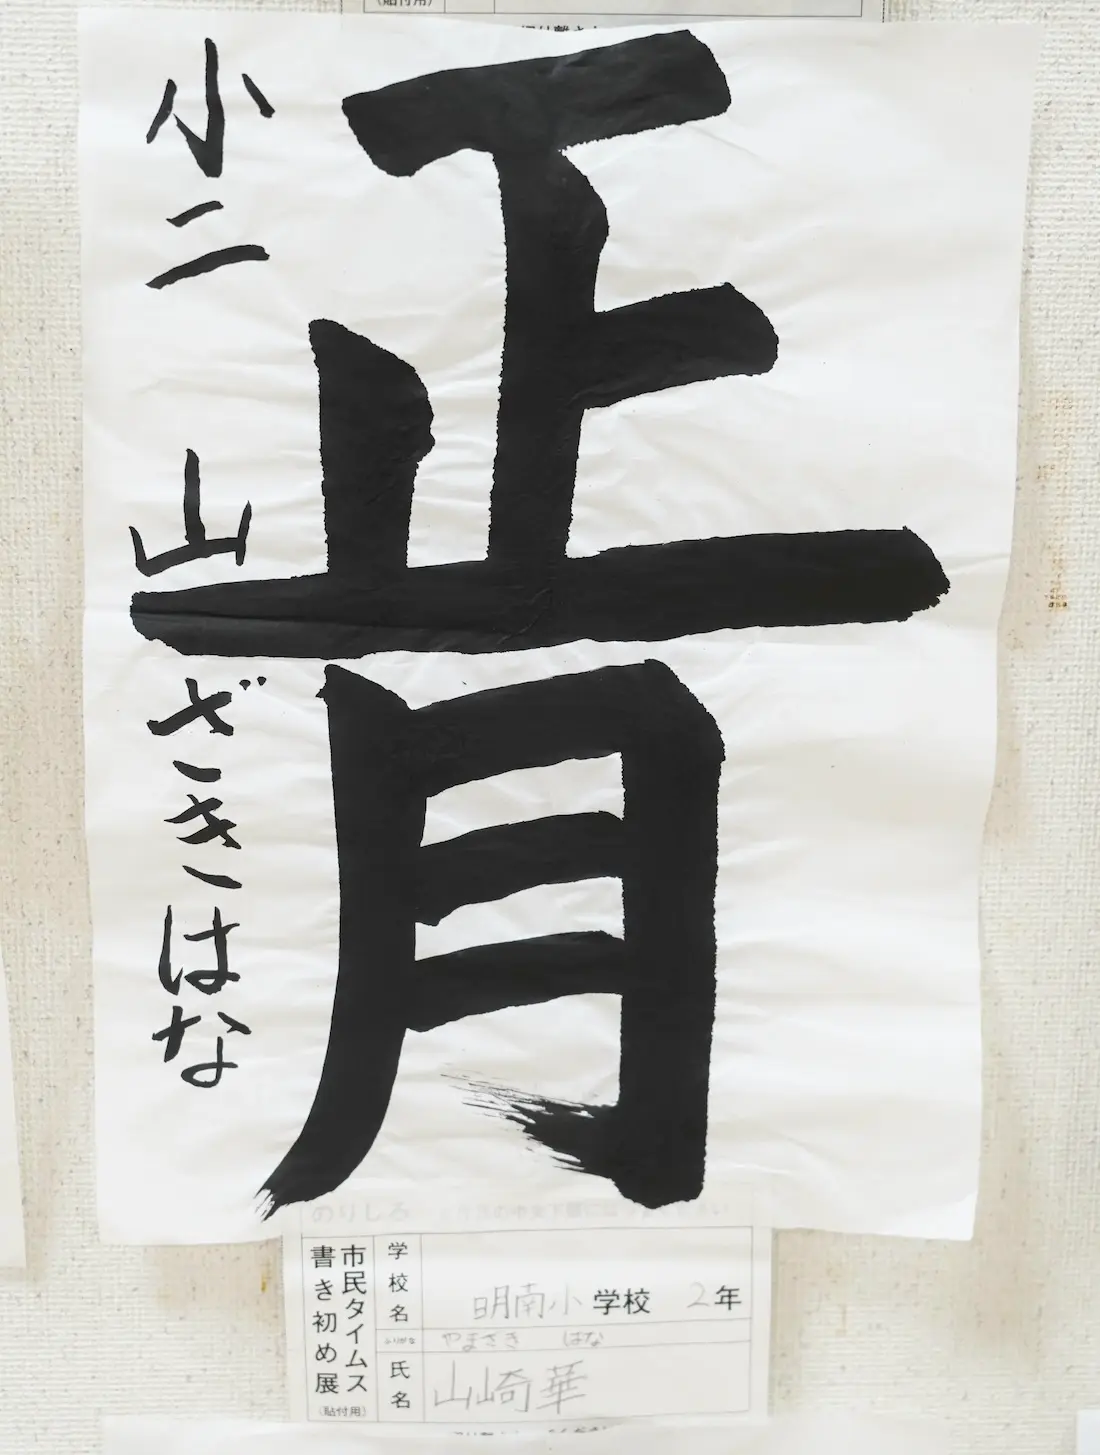 正月
小二 山ざきはな
のりしろ
市民タイムス
書き初め展
(貼付用)
学校名
明南小 学校 2年
ふりがな
やまざき はな
氏名
山崎華
(貼付用)